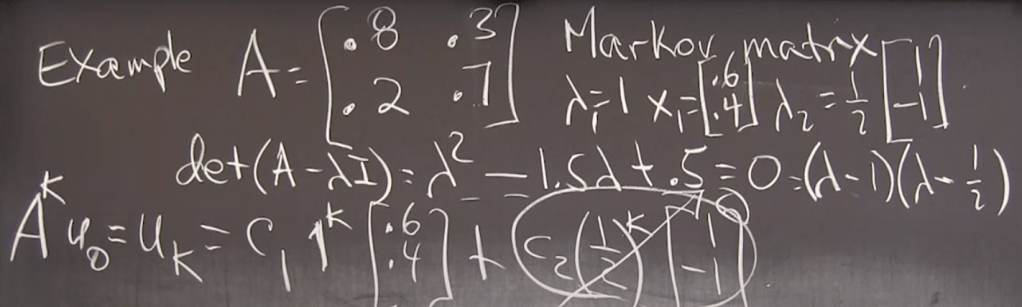 Example A = [.8 .3; .2 .7] Markov matrix
λ₁=1 x₁=[.6; .4] λ₂=1/2 [1; -1]
det(A-λI)=λ²-1.5λ+.5=0=(λ-1)(λ-1/2)
Aᵏu₀=uₖ=c₁1ᵏ[.6; .4]+c₂(1/2)ᵏ[1; -1] 0